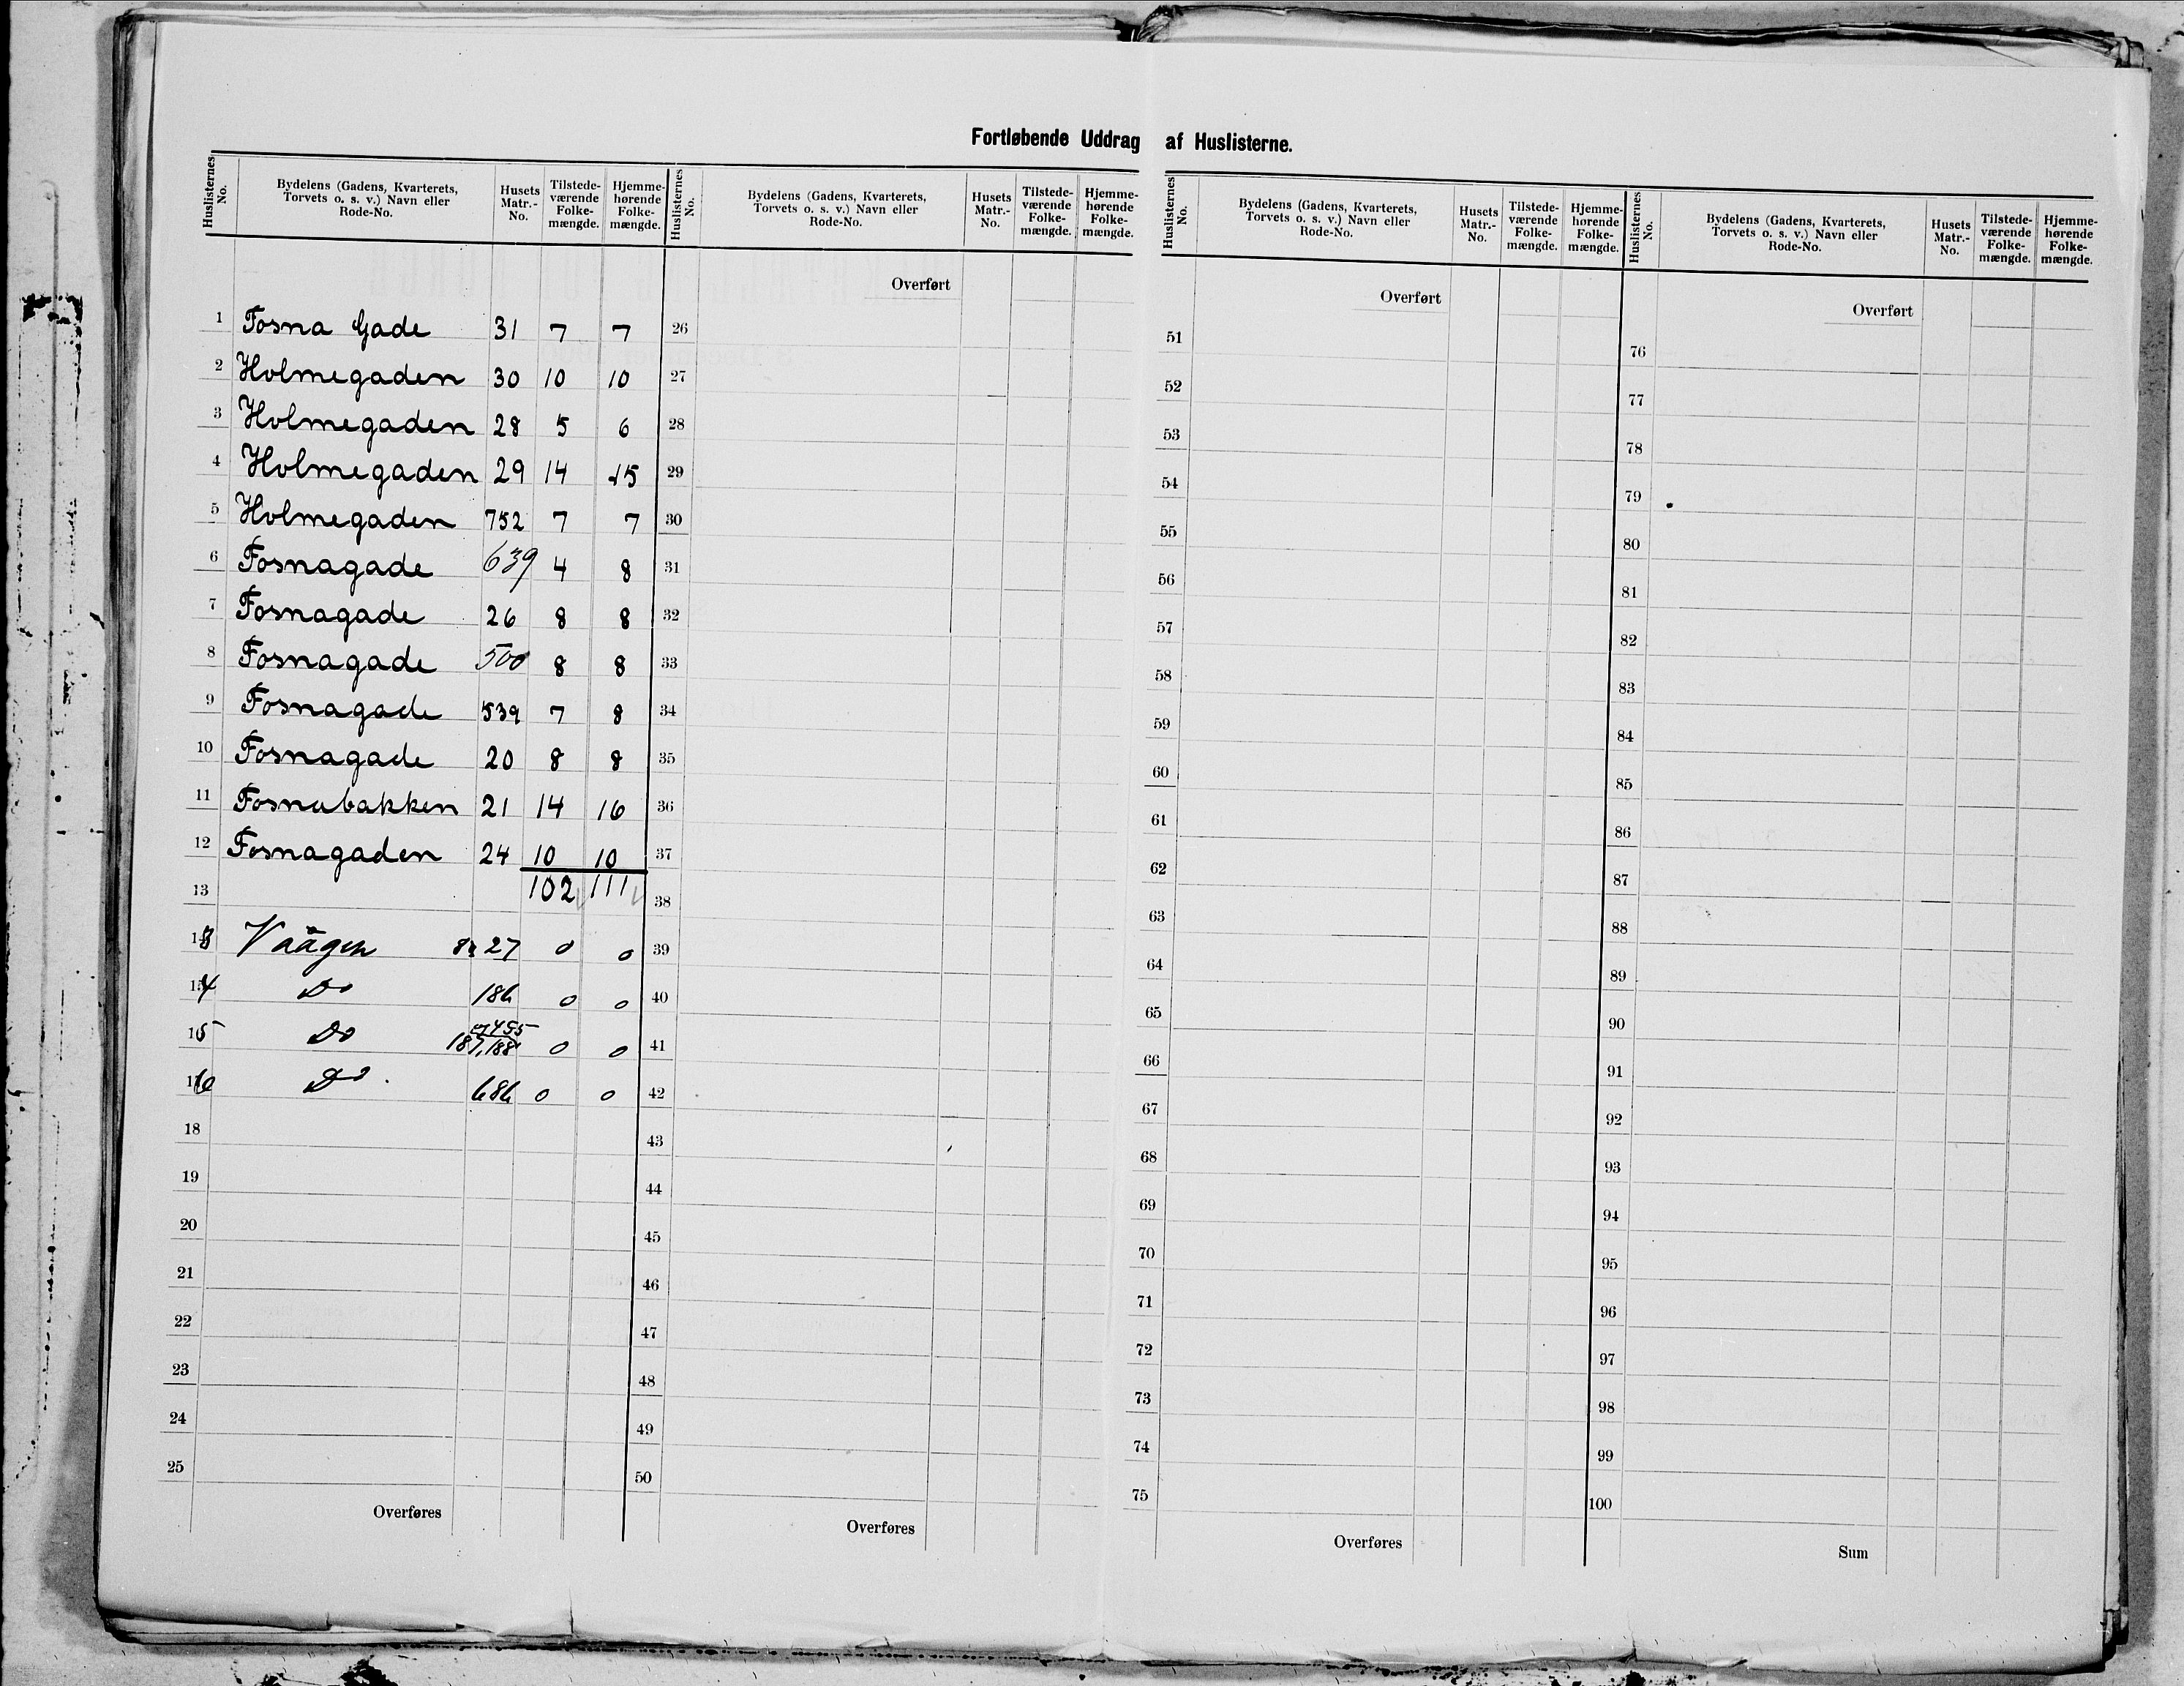 Fortløbende Uddrag af Huslisterne.
Huslisternes No. Bydelens (Gadens, Kvarterets, Torvets o. s. v.) Navn eller Rode-No. Husets Matr.-No. Tilstede-værende Folke-mængde. Hjemme-hørende Folke-mængde.
Huslisternes No. Bydelens (Gadens, Kvarterets, Torvets o. s. v.) Navn eller Rode-No. Husets Matr.-No. Tilstede-værende Folke-mængde. Hjemme-hørende Folke-mængde.
Huslisternes No. Bydelens (Gadens, Kvarterets, Torvets o. s. v.) Navn eller Rode-No. Husets Matr.-No. Tilstede-værende Folke-mængde. Hjemme-hørende Folke-mængde.
Huslisternes No. Bydelens (Gadens, Kvarterets, Torvets o. s. v.) Navn eller Rode-No. Husets Matr.-No. Tilstede-værende Folke-mængde. Hjemme-hørende Folke-mængde.
1 Fosna Gade 31 7 7
2 Holmegaden 30 10 10
3 Holmegaden 28 5 6
4 Holmegaden 29 14 15
5 Holmegaden 752 7 7
6 Fosnagade 639 4 8
7 Fosnagade 26 8 8
8 Fosnagade 500 8 8
9 Fosnagade 539 7 8
10 Fosnagade 20 8 8
11 Fosnabakken 21 14 16
12 Fosnagaden 24 10 10
13 102 111
13 Vaagen 27 0 0
14 Do 186 0 0
15 Do 187, 188 og 455 0 0
16 Do. 686 0 0
18
19
20
21
22
23
24
25
Overføres
Overført
26
27
28
29
30
31
32
33
34
35
36
37
38
39
40
41
42
43
44
45
46
47
48
49
50
Overføres
Overført
51
52
53
54
55
56
57
58
59
60
61
62
63
64
65
66
67
68
69
70
71
72
73
74
75
Overføres
Overført
76
77
78
79
80
81
82
83
84
85
86
87
88
89
90
91
92
93
94
95
96
97
98
99
100
Sum